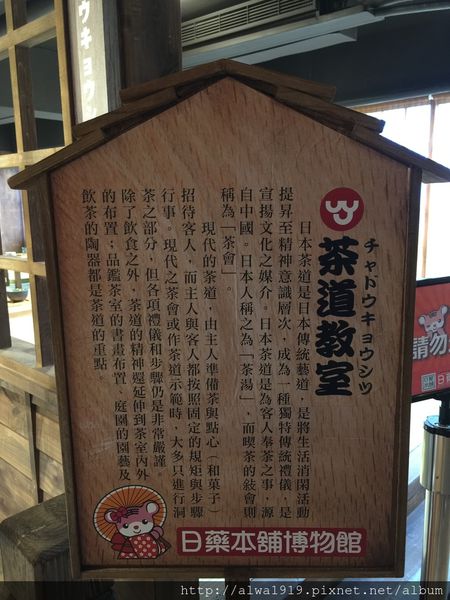 茶道教室
チャドウキョウシツ
日本茶道是日本傳統藝道，是將生活消閑活動
提昇至精神意識層次，成為一種獨特傳統禮儀，是
宣揚文化之媒介。日本茶道是為客人奉茶之事，源
自中國。日本人稱之為「茶湯」，而喫茶的敍會則
稱為「茶會」。
現代的茶道，由主人準備茶與點心（和菓子）
招待客人，而主人與客人都按照固定的規矩與步驟
行事。現代之茶會或作茶道示範時，大多只進行洞
茶之部分，但各項禮儀和步驟仍是非常嚴謹。
除了飲食之外，茶道的精神還延伸到茶室內外
的布置；品鑑茶室的書畫布置、庭園的園藝及
飲茶的陶器都是茶道的重點。
日藥本舖博物館
ウキョウシツ
請勿
日
http://alwa1919.pixnet.net/album